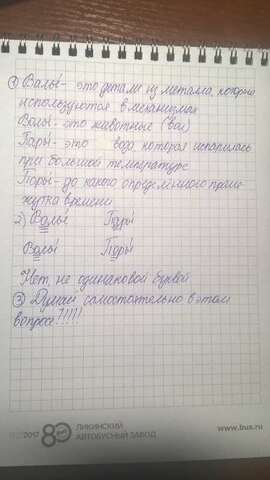 ① Валы́ - это детали из металла, которые
используются в механизмах
Волы́ - это животные (вол)
Пары́ - это вода которая испарилась
при большой температуре
Поры́ - до какого определённого проме
жутка времени
2) Валы́ Пары́
Волы́ Поры́
Нет, не одинаковой буквой
③ Думай самостоятельно в этом
вопросе!!!!!
2017
80 ЛИКИНСКИЙ
АВТОБУСНЫЙ ЗАВОД
www.bus.ru